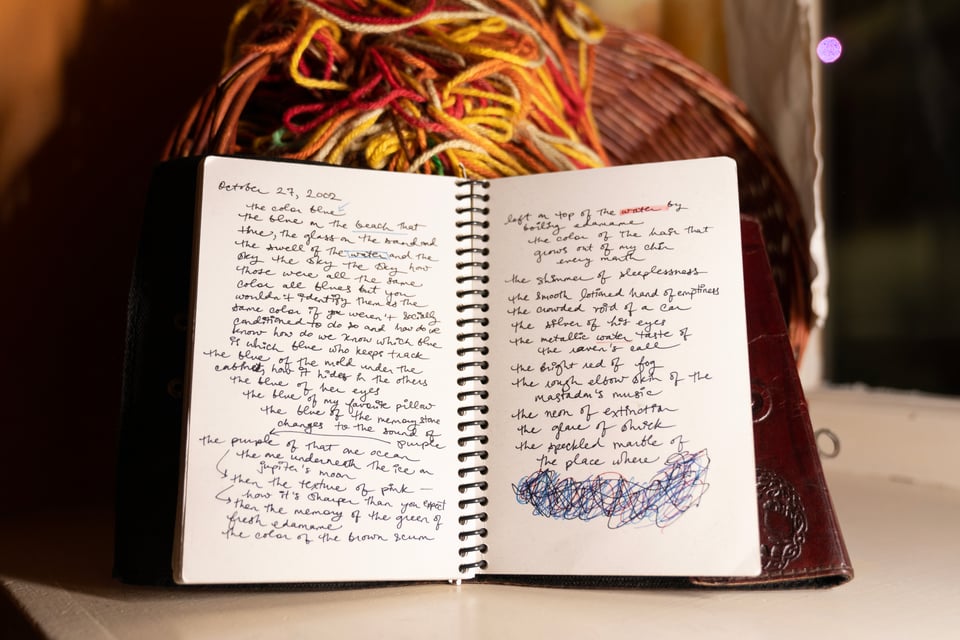 October 27, 2002
the color blue
the blue in the beach that
thue, the glass in the sand and
the swell of the water and the
sky the sky the sky how
those were all the same
color all blues but you
wouldn't identify them as the
same color if you weren't socially
conditioned to do so and how do we
know how do we know which blue
is which blue who keeps track
the blue of the mold under the
cabinets, how it hides in the others
the blue of her eyes
the blue of my favorite pillow
the blue of the memory stone
changes to the sound of
purple
the purple of that one ocean
the one underneath the ice on
jupiter's moon
then the texture of pink —
how it's sharper than you expect
then the memory of the green of
fresh edamame
the color of the brown scum
left on top of the water by
boiling edamame
the color of the hair that
grows out of my chin
every month
the shimmer of sleeplessness
the smooth lotioned hand of emptiness
the crowded void of a car
the silver of his eyes
the metallic water taste of
the raven's call
the bright red of fog
the rough elbow skin of the
mastadon's music
the neon of extinction
the glare of
the speckled marble of
the place where